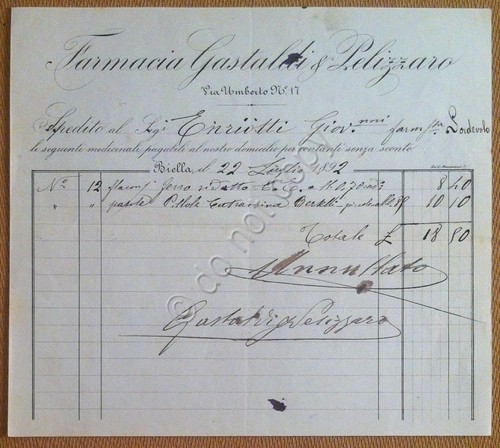 Farmacia Gastaldi & Pelizzaro
Via Umberto No. 17
Spedito al Sigr Enriotti Giovnni farmsta Sordevolo
le seguente medicinale pagabile al nostro domicilio per contanti senza sconto
Biella, il 22 Luglio 1892
No. 12 flaconi ferro ridotto 0,70 8 40
" " Pillole Catramina Bertelli 10 10
Totale £ 18 50
Annullato
Gastaldi & Pelizzaro
© do not copy